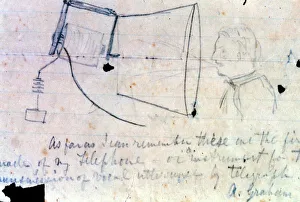 As far as I can remember these are the fir
made of my telephone - or "instrument for
transmission of vocal utterances by telegraph
A. Graham